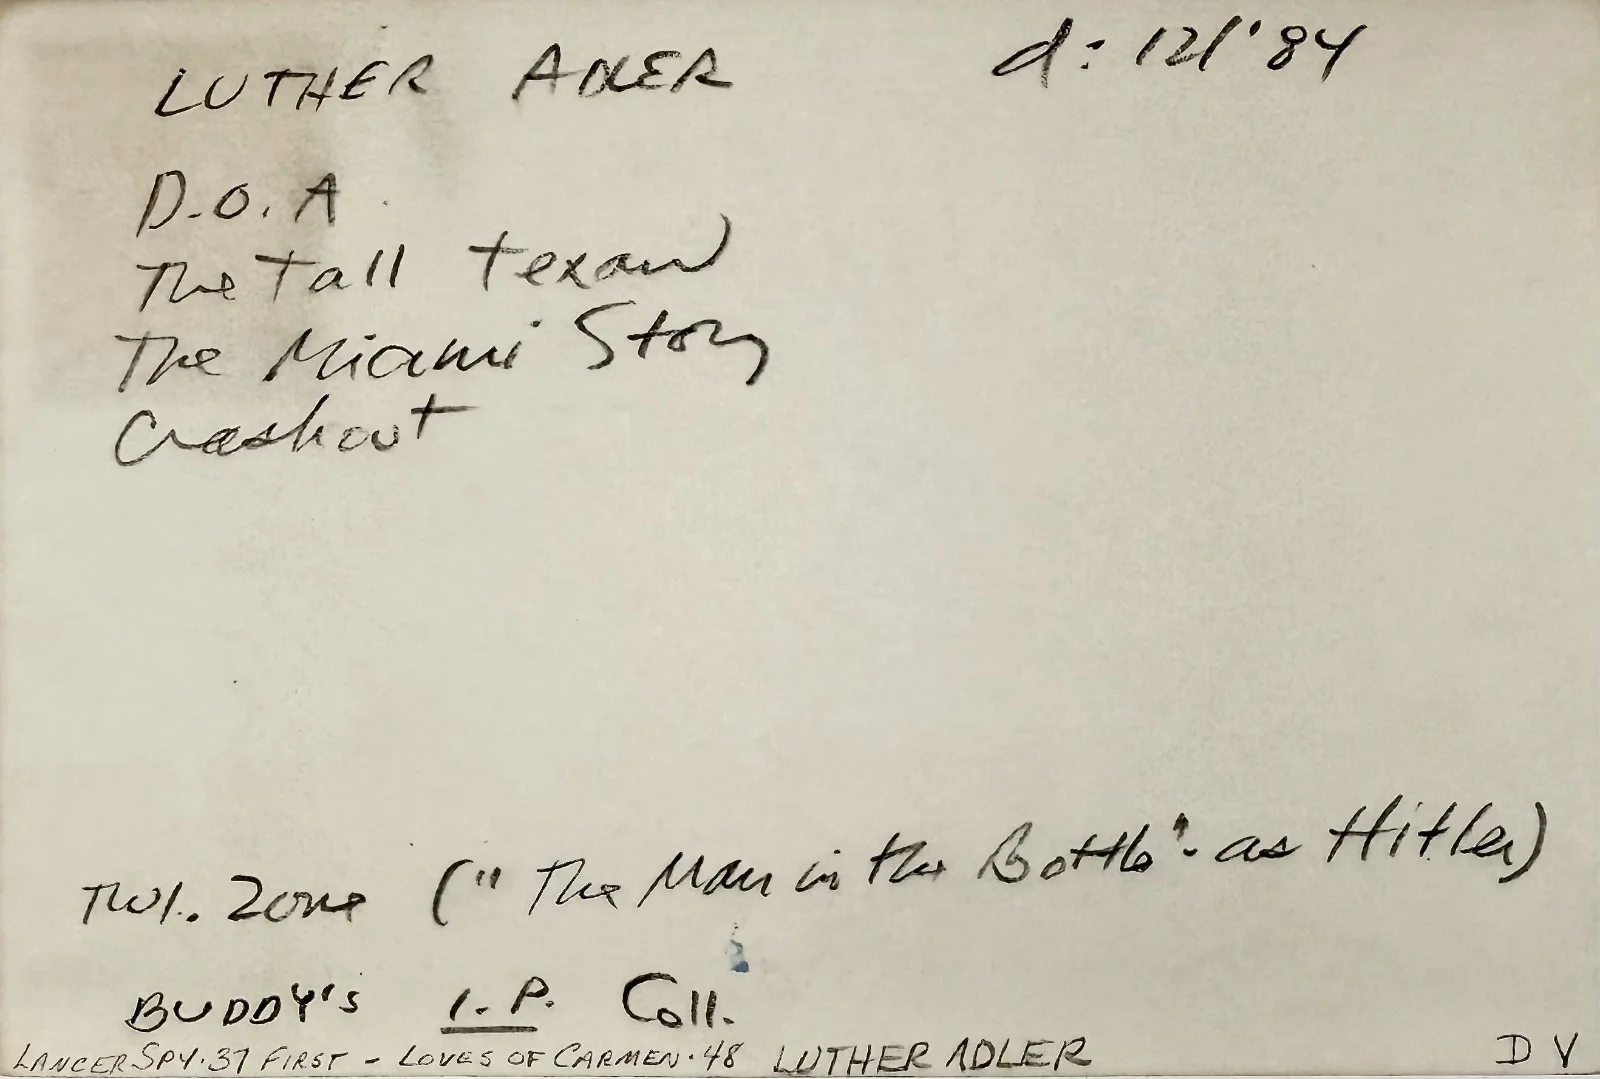 LUTHER ADLER d: 12/'84
D.O.A.
The Tall Texan
The Miami Story
Crashout
Twl. Zone ("The Man in the Bottle"- as Hitler)
BUDDY'S I.P. Coll.
LANCER SPY·37 FIRST - LOVES OF CARMEN·48 LUTHER ADLER DV